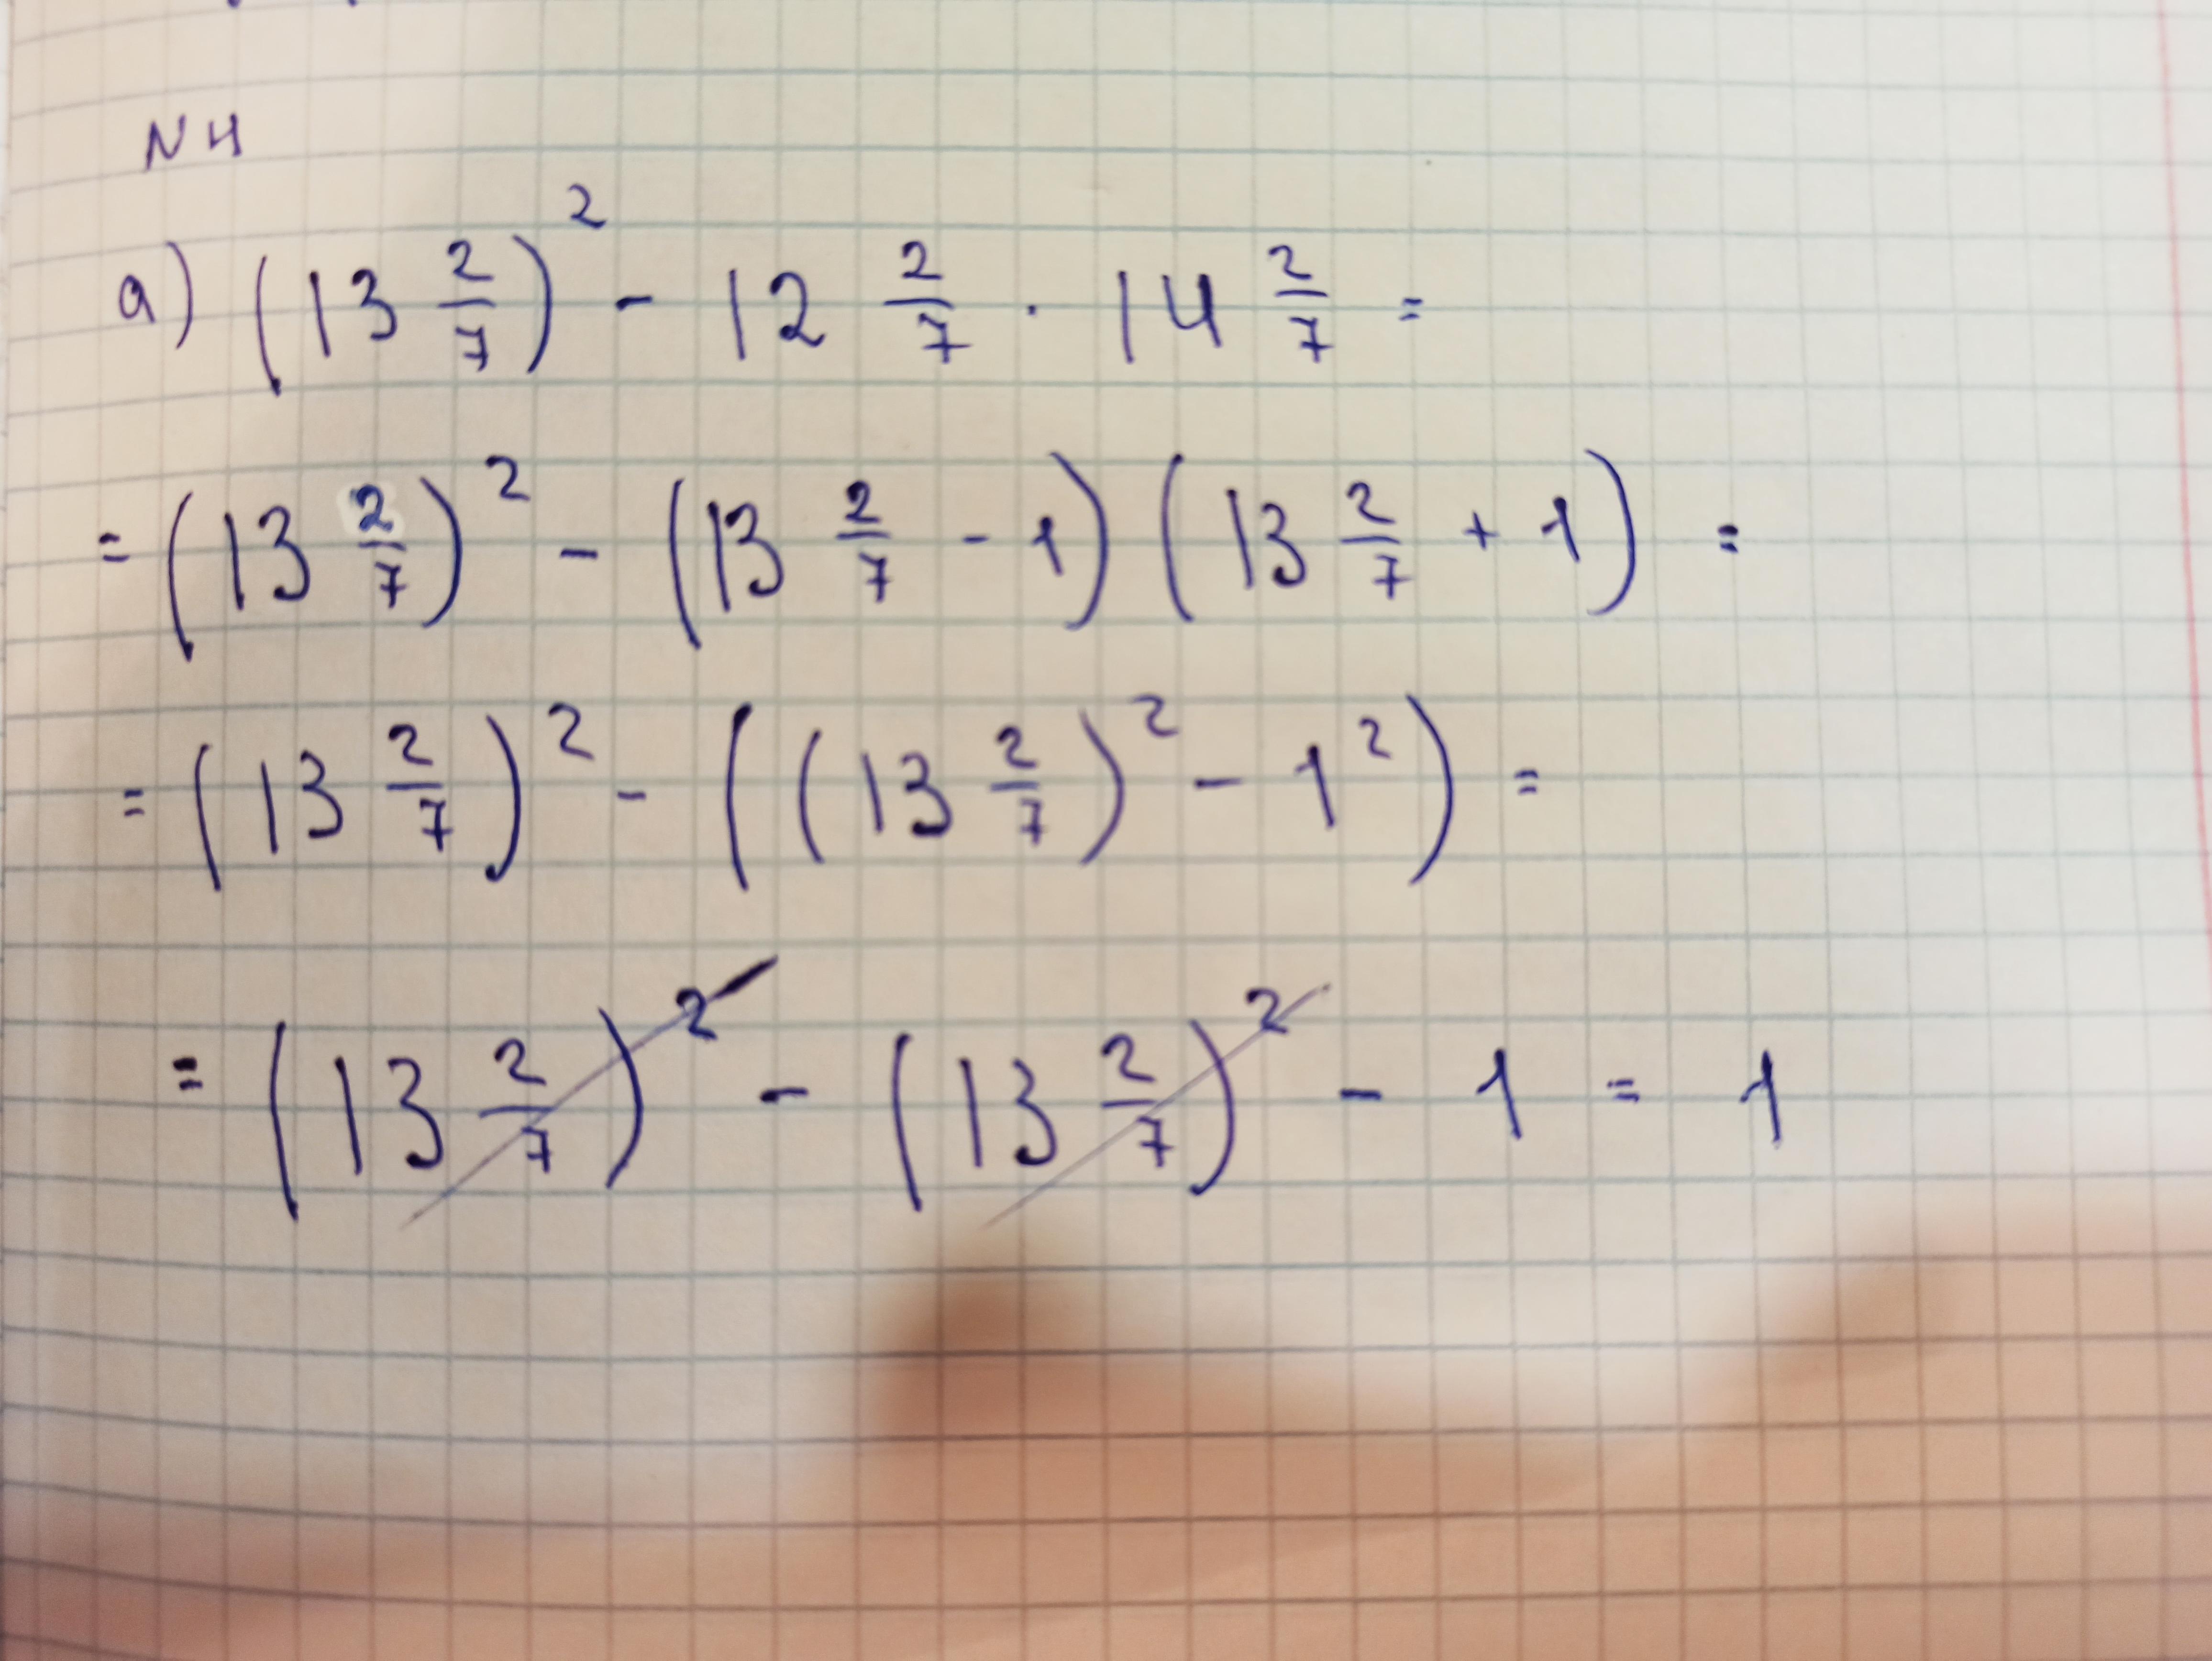 N 4
а) (13 2/7)² - 12 2/7 · 14 2/7 =
= (13 2/7)² - (13 2/7 - 1) (13 2/7 + 1) =
= (13 2/7)² - ((13 2/7)² - 1²) =
= (13 2/7)² - (13 2/7)² - 1 = 1